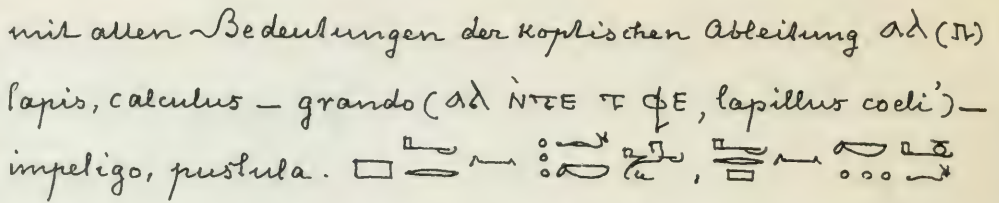 mit allen Bedeutungen der koptischen Ableitung ⲁⲗ (ⲡ)
lapis, calculus – grando (ⲁⲗ ⲛ̀ⲧⲉ ⲧ ⲫⲉ, lapillus coeli') –
impeligo, pustula.